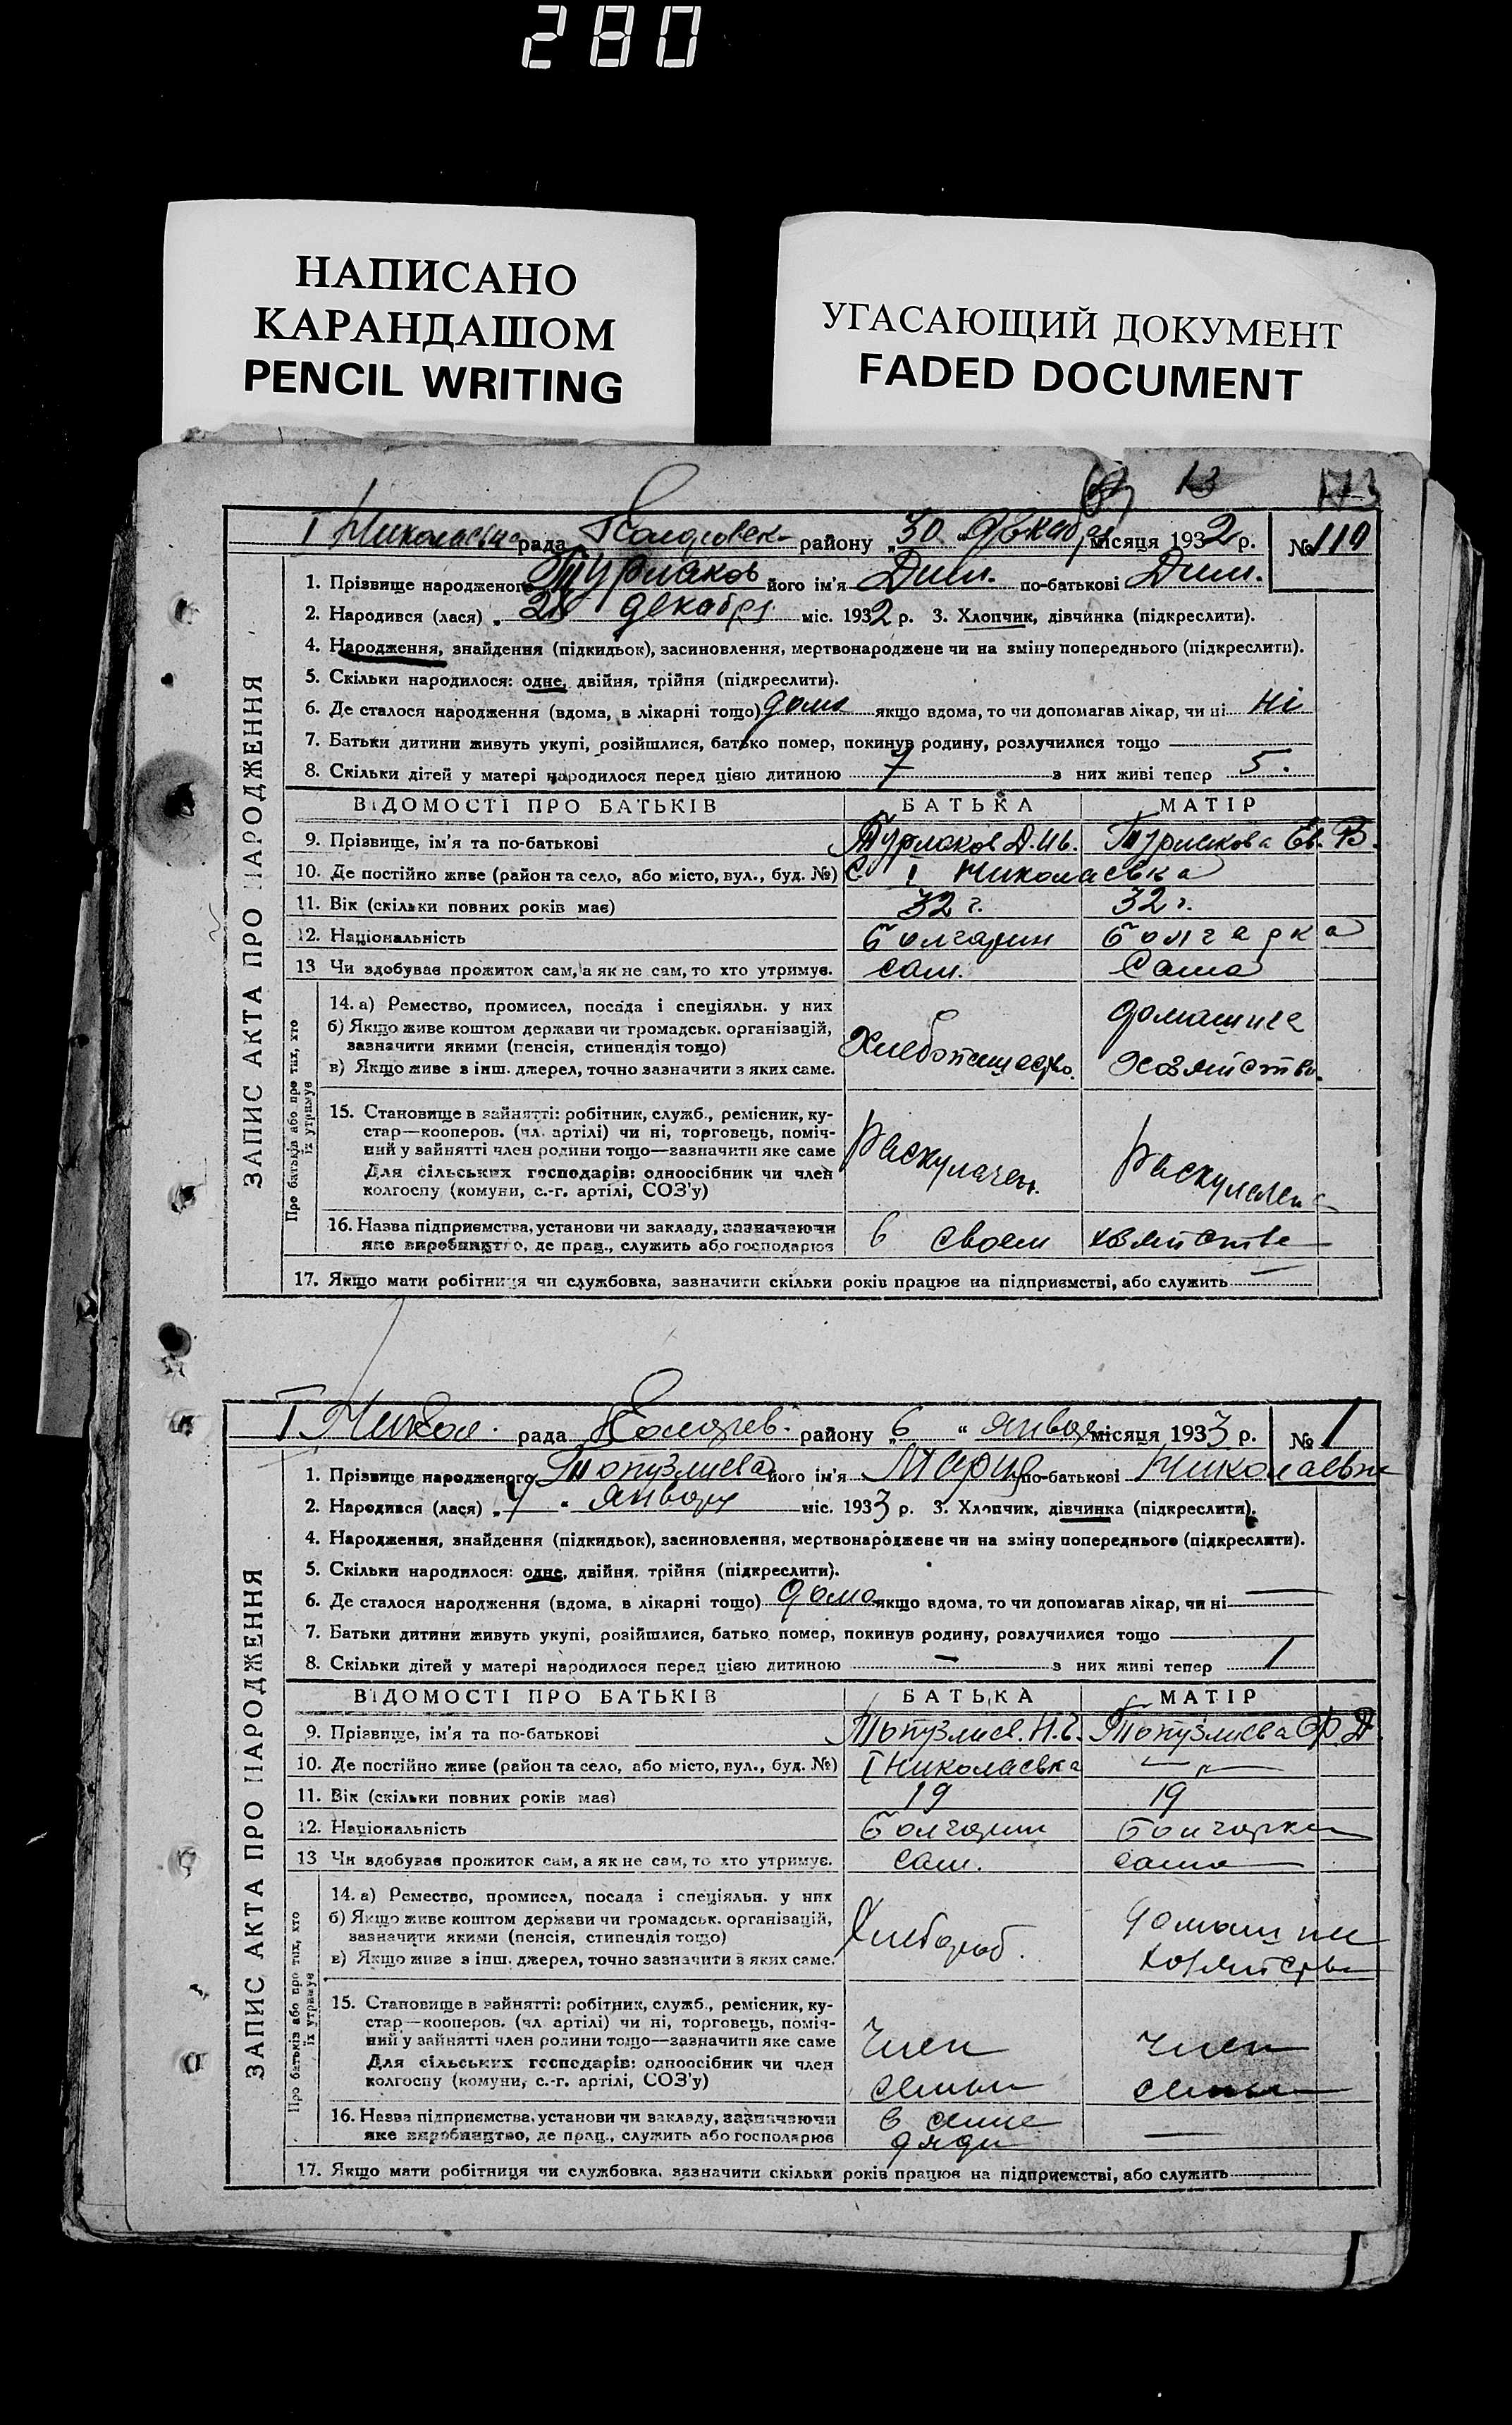 280
НАПИСАНО
КАРАНДАШОМ
PENCIL WRITING
УГАСАЮЩИЙ ДОКУМЕНТ
FADED DOCUMENT
13
І Николаевка рада району „30 “ декабр місяця 1932 р. № 110
1. Прізвище народженого Турлаков його ім'я Дим. по-батькові Дим.
2. Народився (лася) „ декабря міс. 1932 р. 3. Хлопчик, дівчинка (підкреслити).
4. Народження, знайдення (підкидьок), засиновлення, мертвонароджене чи на зміну попереднього (підкреслити).
5. Скільки народилося: одне, двійня, трійня (підкреслити).
6. Де сталося народження (вдома, в лікарні тощо) дома якщо вдома, то чи допомагав лікар, чи ні Ні
7. Батьки дитини живуть укупі, розійшлися, батько помер, покинув родину, розлучилися тощо
8. Скільки дітей у матері народилося перед цією дитиною 7 з них живі тепер 5.
ВІДОМОСТІ ПРО БАТЬКІВ БАТЬКА МАТІР
9. Прізвище, ім'я та по-батькові Турлаков Д. Ив. Турлакова Ев. В.
10. Де постійно живе (район та село, або місто, вул., буд. №) С І Николаевка
11. Вік (скільки повних років має) 32 г. 32 г.
12. Національність болгарин болгарка
13 Чи здобував прожиток сам, а як не сам, то хто утримує. сам. Сама
14. а) Ремество, промисел, посада і спеціяльн. у них
б) Якщо живе коштом держави чи громадськ. організацій,
зазначити якими (пенсія, стипендія тощо)
в) Якщо живе з інш. джерел, точно зазначити з яких саме.
домашнее
хозяйство.
15. Становище в зайнятті: робітник, служб., ремісник, ку-
стар—кооперов. (чл. артілі) чи ні, торговець, поміч-
ний у зайнятті член родини тощо—зазначити яке саме
Для сільських господарів: одноосібник чи член
колгоспу (комуни, с.-г. артілі, СОЗ'у)
раскулачен. раскулачена
16. Назва підприємства, установи чи закладу, зазначаючи
яке виробництво, де прац., служить або господарює
в своем хозяйстве
17. Якщо мати робітниця чи службовка, зазначити скільки років працює на підприємстві, або служить
ЗАПИС АКТА ПРО НАРОДЖЕННЯ
Про батьків або про тих, хто
їх утримує
І Никол. рада району „6 “ января місяця 1933 р. № 1
1. Прізвище народженого Топузлиева його ім'я Мария по-батькові Николаевна
2. Народився (лася) „ “ января міс. 1933 р. 3. Хлопчик, дівчинка (підкреслити).
4. Народження, знайдення (підкидьок), засиновлення, мертвонароджене чи на зміну попереднього (підкреслити).
5. Скільки народилося: одне, двійня, трійня (підкреслити).
6. Де сталося народження (вдома, в лікарні тощо) дома якщо вдома, то чи допомагав лікар, чи ні
7. Батьки дитини живуть укупі, розійшлися, батько помер, покинув родину, розлучилися тощо
8. Скільки дітей у матері народилося перед цією дитиною — з них живі тепер 1
ВІДОМОСТІ ПРО БАТЬКІВ БАТЬКА МАТІР
9. Прізвище, ім'я та по-батькові Топузлиев. Н. Топузлиева Ф. Д.
10. Де постійно живе (район та село, або місто, вул., буд. №) І Николаевка — „ —
11. Вік (скільки повних років має) 19 19
12. Національність болгарин болгарка
13 Чи здобував прожиток сам, а як не сам, то хто утримує. сам. сама
14. а) Ремество, промисел, посада і спеціяльн. у них
б) Якщо живе коштом держави чи громадськ. організацій,
зазначити якими (пенсія, стипендія тощо)
в) Якщо живе з інш. джерел, точно зазначити з яких саме.
Хлебороб. домашнее
хозяйство
15. Становище в зайнятті: робітник, служб., ремісник, ку-
стар—кооперов. (чл. артілі) чи ні, торговець, поміч-
ний у зайнятті член родини тощо—зазначити яке саме
Для сільських господарів: одноосібник чи член
колгоспу (комуни, с.-г. артілі, СОЗ'у)
член член
семьи семьи
16. Назва підприємства, установи чи закладу, зазначаючи
яке виробництво, де прац., служить або господарює
в семье
дяди
17. Якщо мати робітниця чи службовка, зазначити скільки років працює на підприємстві, або служить
ЗАПИС АКТА ПРО НАРОДЖЕННЯ
Про батьків або про тих, хто
їх утримує